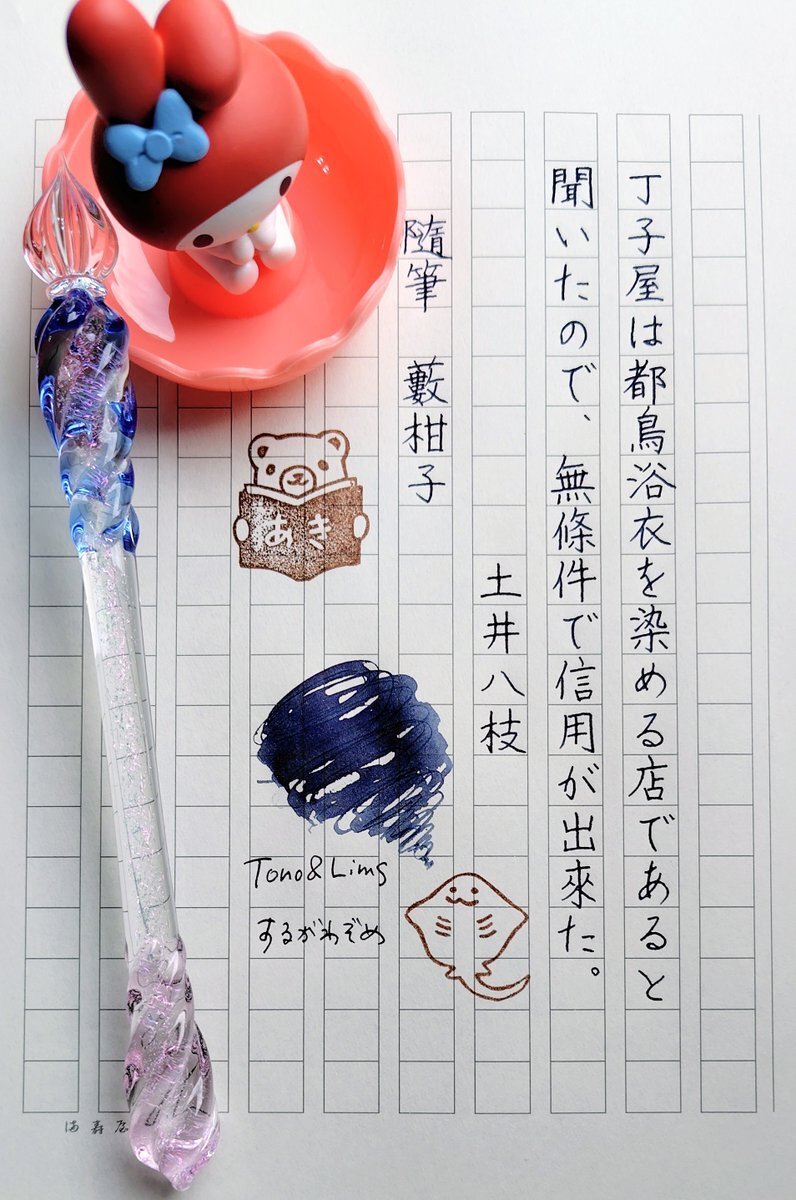 丁子屋は都鳥浴衣を染める店であると
聞いたので、無條件で信用が出來た。
土井八枝
隨筆　藪柑子
あき
Tono&Lims
するがわぞめ
満寿屋